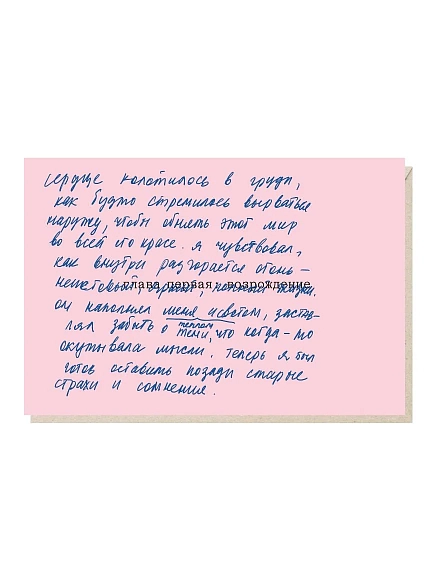 сердце колотилось в груди,
как будто стремилось вырваться
наружу, чтобы обнять этот мир
во всей его красе. я чувствовал,
как внутри разгорается огонь –
неистовый, полный жизни.
глава первая: возрождение
он наполнял меня и светом, застав-
теплом
лял забыть о тени, что когда-то
окутывала мысли. теперь я был
готов оставить позади старые
страхи и сомнения.